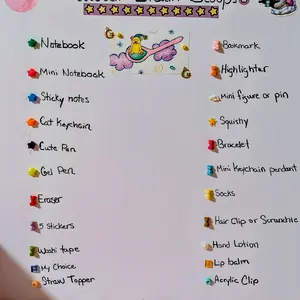 Scoops
Notebook
Mini Notebook
Sticky notes
Cat Keychain
Cute Pen
Gel Pen
Eraser
5 Stickers
Washi tape
My Choice
Straw Topper
Bookmark
Highlighter
mini figure or pin
Squishy
Bracelet
Mini Keychain pendant
Socks
Hair Clip or Scrunchie
Hand Lotion
Lip balm
Acrylic Clip